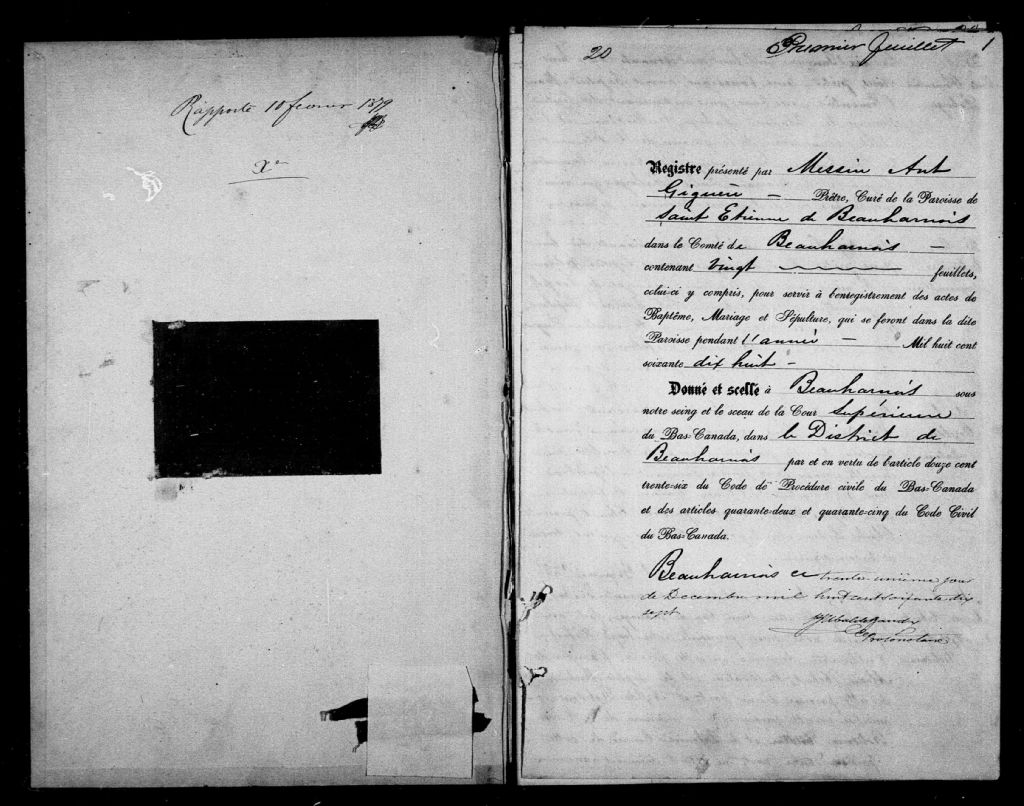 Rapporté 10 fevrier 1879
20
Premier feuillet 1
Registre présenté par Messire Ant
Giguère — Prêtre, Curé de la Paroisse de
Saint Etienne de Beauharnois
dans le Comté de Beauharnois —
contenant vingt feuillets,
celui-ci y compris, pour servir à l'enregistrement des actes de
Baptême, Mariage et Sépulture, qui se feront dans la dite
Paroisse pendant l'année — Mil huit cent
soixante dix huit —
Donné et scellé à Beauharnois sous
notre seing et le sceau de la Cour Supérieure
du Bas-Canada, dans le District de
Beauharnois par et en vertu de l'article douze cent
trente-six du Code de Procédure civile du Bas-Canada
et des articles quarante-deux et quarante-cinq du Code Civil
du Bas-Canada.
Beauharnois ce trente unième jour
de Decembre mil huit cent soixante dix
sept
Protonotaire